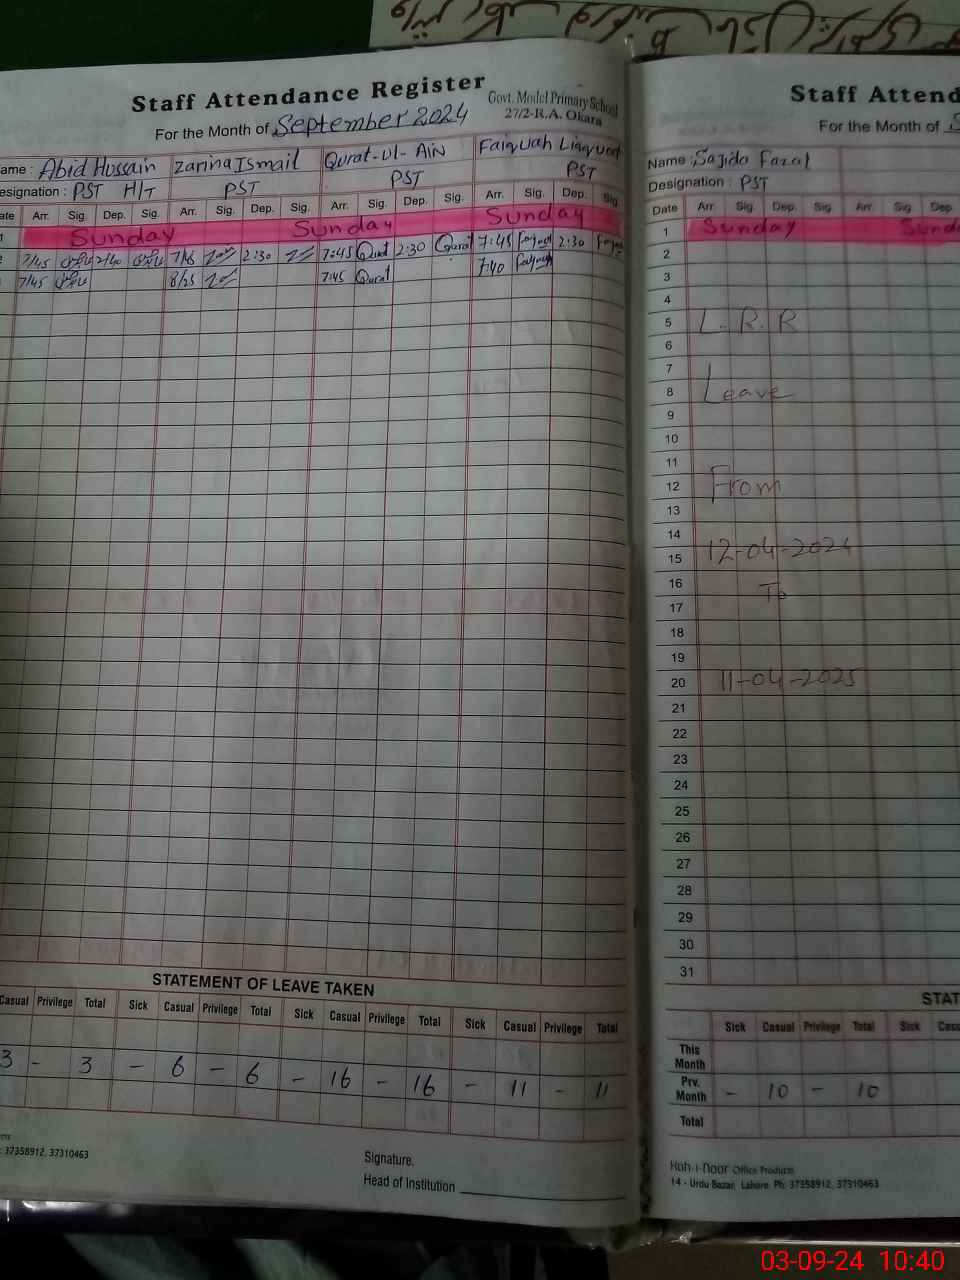 Staff Attendance Register
Govt. Model Primary School
27/2-R.A. Okara
For the Month of September 2024
ame : Abid Hussain Zarina Ismail Qurat-ul-Ain Faiquah Liaquat
esignation : PST H/T PST PST PST
ate Arr. Sig. Dep. Sig. Arr. Sig. Dep. Sig. Arr. Sig. Dep. Sig. Arr. Sig. Dep. Sig.
1 Sunday Sunday Sunday
7/45 2/40 2:30 7:45 Qurat 2:30 Qurat 7:45 2:30
7/45 8/25 7:45 Qurat 7:40
STATEMENT OF LEAVE TAKEN
Casual Privilege Total Sick Casual Privilege Total Sick Casual Privilege Total Sick Casual Privilege Total
3 - 3 - 6 - 6 - 16 - 16 - 11 - 11
: 37358912, 37310463
Signature.
Head of Institution
Staff Attend
For the Month of S
Name : Sajida Fazal
Designation : PST
Date Arr. Sig. Dep. Sig. Arr. Sig. Dep.
1 Sunday Sund
2
3
4
5 L.R.R
6
7
8 Leave
9
10
11
12 From
13
14
15 12-04-2024
16 To
17
18
19
20 11-04-2025
21
22
23
24
25
26
27
28
29
30
31
STAT
Sick Casual Privilege Total Sick Casu
This
Month
Prv.
Month - 10 - 10
Total
Koh-i-Noor Office Products
14 - Urdu Bazar, Lahore. Ph: 37358912, 37310463
03-09-24 10:40